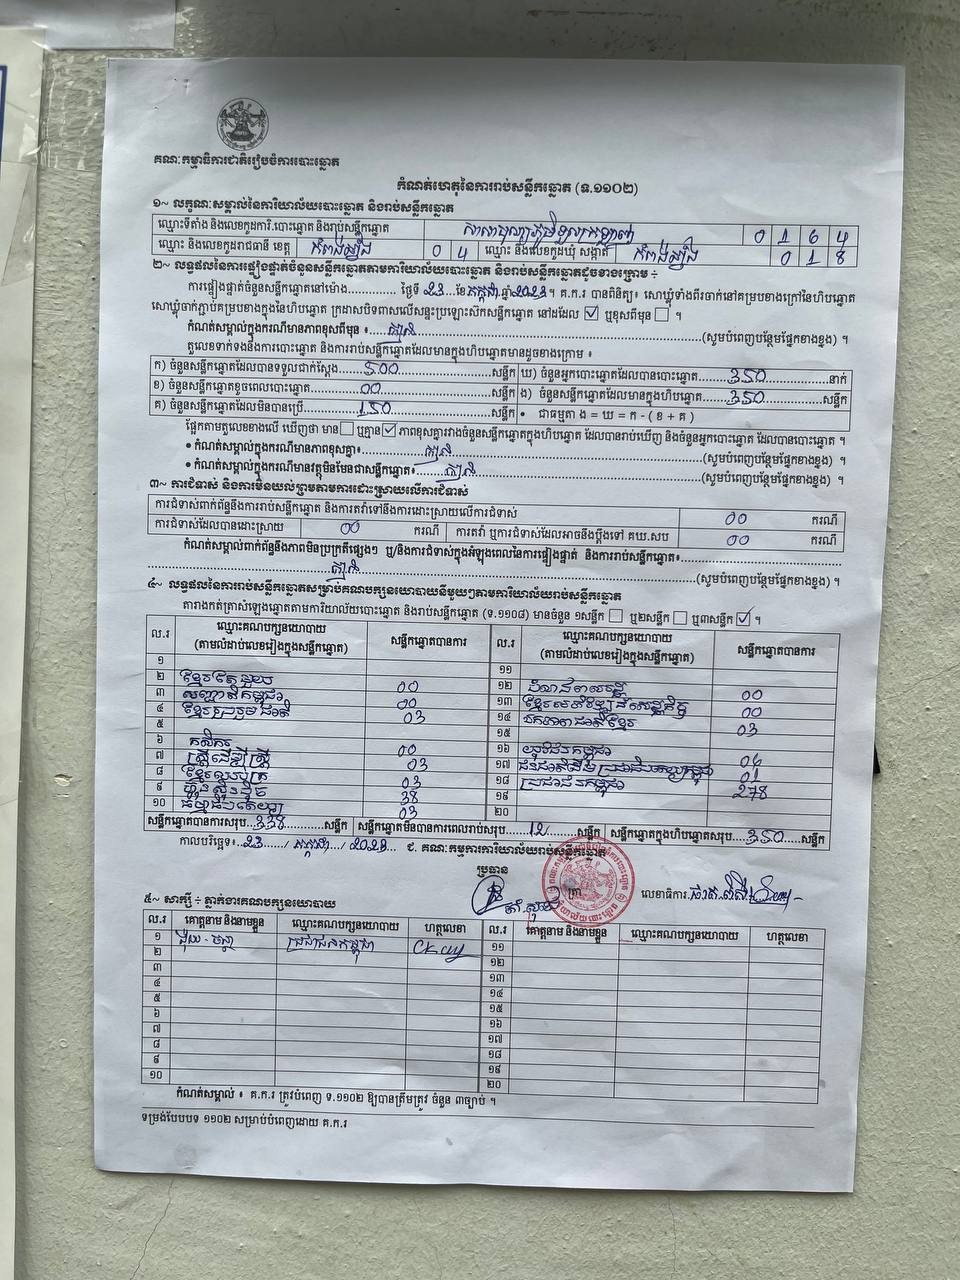 គណៈកម្មាធិការជាតិរៀបចំការបោះឆ្នោត
កំណត់ហេតុនៃការរាប់សន្លឹកឆ្នោត (ទ.១១០២)
១~ លក្ខណៈសម្គាល់នៃការិយាល័យបោះឆ្នោត និងរាប់សន្លឹកឆ្នោត
ឈ្មោះទីតាំង និងលេខកូដការិ.បោះឆ្នោត និងរាប់សន្លឹកឆ្នោត 0 1 6 4
ឈ្មោះ និងលេខកូដរាជធានី ខេត្ត កំពង់ឆ្នាំង 0 4 ឈ្មោះ និងលេខកូដឃុំ សង្កាត់ កំពង់ឆ្នាំង 0 1 8
២~ លទ្ធផលនៃការផ្ទៀងផ្ទាត់ចំនួនសន្លឹកឆ្នោតតាមការិយាល័យបោះឆ្នោត និងរាប់សន្លឹកឆ្នោតដូចខាងក្រោម ÷
ការផ្ទៀងផ្ទាត់ចំនួនសន្លឹកឆ្នោតនៅម៉ោង............ ថ្ងៃទី 23 ...ខែ កក្កដា ឆ្នាំ 2023 ។ គ.ក.រ បានពិនិត្យ៖ សោឃ្លុំទាំងពីរចាក់នៅគម្របខាងក្រៅនៃហិបឆ្នោត
សោឃ្លុំចាក់ភ្ជាប់គម្របខាងក្នុងនៃហិបឆ្នោត ក្រដាសបិទពាសលើសន្ទះប្រឡោះសឹកសន្លឹកឆ្នោត នៅដដែល ☑ ឬខុសពីមុន ☐ ។
កំណត់សម្គាល់ក្នុងករណីមានភាពខុសពីមុន ៖ គ្មាន (សូមបំពេញបន្ថែមផ្នែកខាងខ្នង) ។
តួលេខទាក់ទងនឹងការបោះឆ្នោត និងការរាប់សន្លឹកឆ្នោតដែលមានក្នុងហិបឆ្នោតមានដូចខាងក្រោម ៖
ក) ចំនួនសន្លឹកឆ្នោតដែលបានទទួលជាក់ស្តែង 500 សន្លឹក ឃ) ចំនួនអ្នកបោះឆ្នោតដែលបានបោះឆ្នោត 350 នាក់
ខ) ចំនួនសន្លឹកឆ្នោតខូចពេលបោះឆ្នោត 00 សន្លឹក ង) ចំនួនសន្លឹកឆ្នោតដែលមានក្នុងហិបឆ្នោត 350 សន្លឹក
គ) ចំនួនសន្លឹកឆ្នោតដែលមិនបានប្រើ 150 សន្លឹក • ជាធម្មតា ង = ឃ = ក - ( ខ + គ )
ផ្អែកតាមតួលេខខាងលើ ឃើញថា មាន ☐ ឬគ្មាន ☑ ភាពខុសគ្នារវាងចំនួនសន្លឹកឆ្នោតក្នុងហិបឆ្នោត ដែលបានរាប់ឃើញ និងចំនួនអ្នកបោះឆ្នោត ដែលបានបោះឆ្នោត ។
• កំណត់សម្គាល់ក្នុងករណីមានភាពខុសគ្នា៖ គ្មាន (សូមបំពេញបន្ថែមផ្នែកខាងខ្នង) ។
• កំណត់សម្គាល់ក្នុងករណីមានវត្ថុមិនមែនជាសន្លឹកឆ្នោត៖ គ្មាន (សូមបំពេញបន្ថែមផ្នែកខាងខ្នង) ។
៣~ ការជំទាស់ និងការមិនយល់ព្រមតាមការដោះស្រាយលើការជំទាស់
ការជំទាស់ពាក់ព័ន្ធនឹងការរាប់សន្លឹកឆ្នោត និងការតវ៉ាទៅនឹងការដោះស្រាយលើការជំទាស់ 00 ករណី
ការជំទាស់ដែលបានដោះស្រាយ 00 ករណី ការតវ៉ា ឬការជំទាស់ដែលអាចនឹងប្តឹងទៅ គឃ.សប 00 ករណី
កំណត់សម្គាល់ពាក់ព័ន្ធនឹងភាពមិនប្រក្រតីផ្សេងៗ ឬ/និងការជំទាស់ក្នុងអំឡុងពេលនៃការផ្ទៀងផ្ទាត់ និងការរាប់សន្លឹកឆ្នោត៖
គ្មាន (សូមបំពេញបន្ថែមផ្នែកខាងខ្នង) ។
៤~ លទ្ធផលនៃការរាប់សន្លឹកឆ្នោតសម្រាប់គណបក្សនយោបាយនីមួយៗតាមការិយាល័យរាប់សន្លឹកឆ្នោត
តារាងកត់ត្រាសំឡេងឆ្នោតតាមការិយាល័យបោះឆ្នោត និងរាប់សន្លឹកឆ្នោត (ទ.១១០៨) មានចំនួន ១សន្លឹក ☐ ឬ២សន្លឹក ☐ ឬ៣សន្លឹក ☑ ។
ល.រ ឈ្មោះគណបក្សនយោបាយ (តាមលំដាប់លេខរៀងក្នុងសន្លឹកឆ្នោត) សន្លឹកឆ្នោតបានការ ល.រ ឈ្មោះគណបក្សនយោបាយ (តាមលំដាប់លេខរៀងក្នុងសន្លឹកឆ្នោត) សន្លឹកឆ្នោតបានការ
១ ខ្មែរតែមួយ 00 ១១ ដំណាងរាស្ត្រ 00
២ សញ្ជាតិកម្ពុជា 00 ១២ 00
៣ ខ្មែររួបរួមជាតិ 03 ១៣ ឯកភាពជាតិខ្មែរ 03
៤ ១៤
៥ កសិករ 00 ១៥ យុវជនកម្ពុជា 04
៦ ស្ត្រីដើម្បីស្ត្រី 03 ១៦ 01
៧ 03 ១៧ ប្រជាជនកម្ពុជា 278
៨ ហ៊្វុនស៊ិនប៉ិច 38 ១៨
៩ ធម្មាធិបតេយ្យ 03 ១៩
១០ ២០
សន្លឹកឆ្នោតបានការសរុប 338 សន្លឹក សន្លឹកឆ្នោតមិនបានការពេលរាប់សរុប 12 សន្លឹក សន្លឹកឆ្នោតក្នុងហិបឆ្នោតសរុប 350 សន្លឹក
កាលបរិច្ឆេទ៖ 23 / កក្កដា / 2023 ជ. គណៈកម្មការការិយាល័យរាប់សន្លឹកឆ្នោត
ប្រធាន
ត្រា លេខាធិការ
៥~ សាក្សី ÷ ភ្នាក់ងារគណបក្សនយោបាយ
ល.រ គោត្តនាម និងនាមខ្លួន ឈ្មោះគណបក្សនយោបាយ ហត្ថលេខា ល.រ គោត្តនាម និងនាមខ្លួន ឈ្មោះគណបក្សនយោបាយ ហត្ថលេខា
១ ប្រជាជនកម្ពុជា ១១
២ ១២
៣ ១៣
៤ ១៤
៥ ១៥
៦ ១៦
៧ ១៧
៨ ១៨
៩ ១៩
១០ ២០
កំណត់សម្គាល់ ៖ គ.ក.រ ត្រូវបំពេញ ទ.១១០២ ឱ្យបានត្រឹមត្រូវ ចំនួន ៣ច្បាប់ ។
ទម្រង់បែបបទ ១១០២ សម្រាប់បំពេញដោយ គ.ក.រ